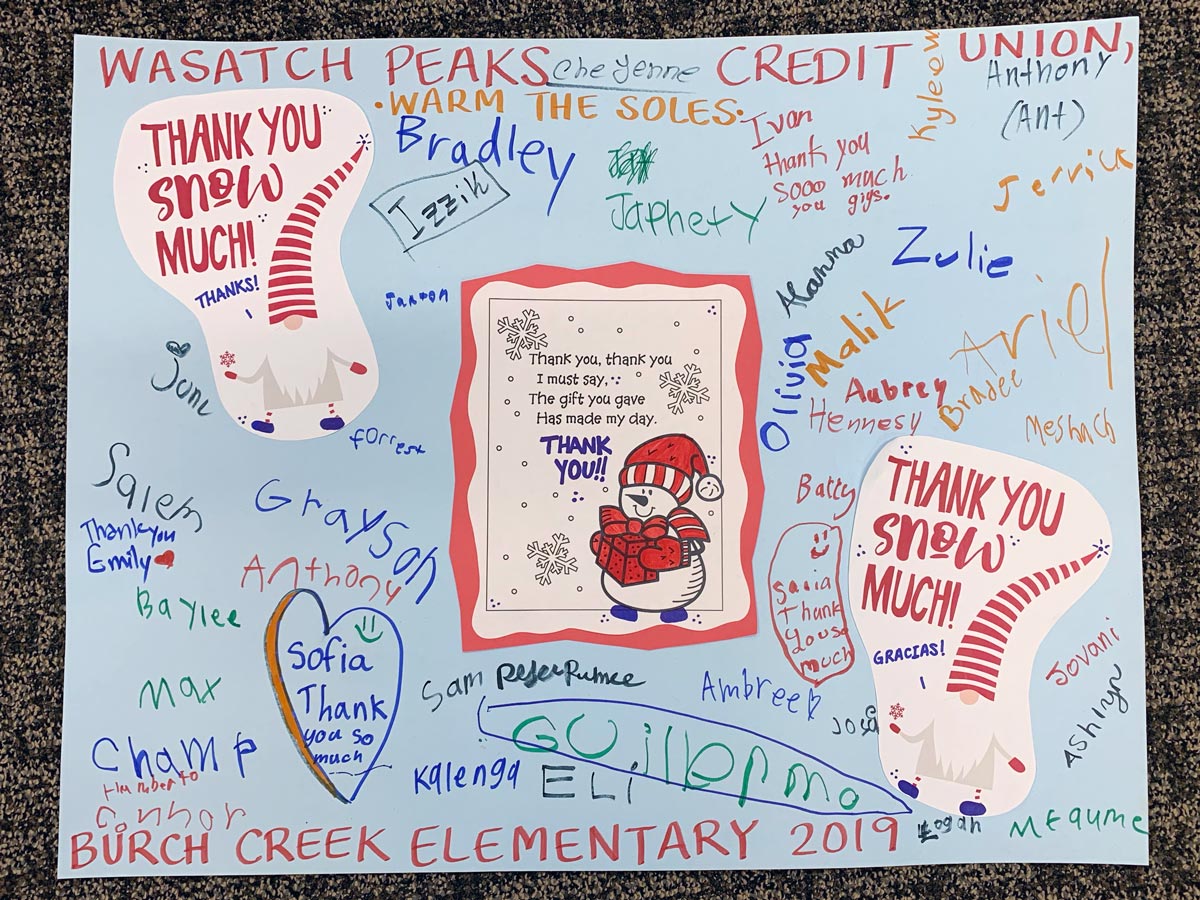 WASATCH PEAKS CREDIT UNION,
Cheyenne
Kyleew
Anthony
(Ant)
•WARM THE SOLES•
THANK YOU
SNOW
MUCH!
THANKS!
Bradley
Izzik
Japhety
Ivan
thank you
sooo much
you gigs.
Jerrick
Zulie
Alanna
Malik
Olivia
Ariel
Aubrey
Hennesy
Bradee
Meshach
Jaxton
Juni
forrest
Thank you, thank you
I must say,
The gift you gave
Has made my day.
THANK
YOU!!
Salem
Thankyou
Emily
Grayson
Anthony
Baylee
Max
Champ
Humberto
Connor
Sofia
Thank
you so
much
Batty
Saria
Thank
you so
much
THANK YOU
SNOW
MUCH!
GRACIAS!
Jovani
Ashlyn
Sam
Ambree
José
Guillermo
Kalenga
ELi
Logan
BURCH CREEK ELEMENTARY 2019